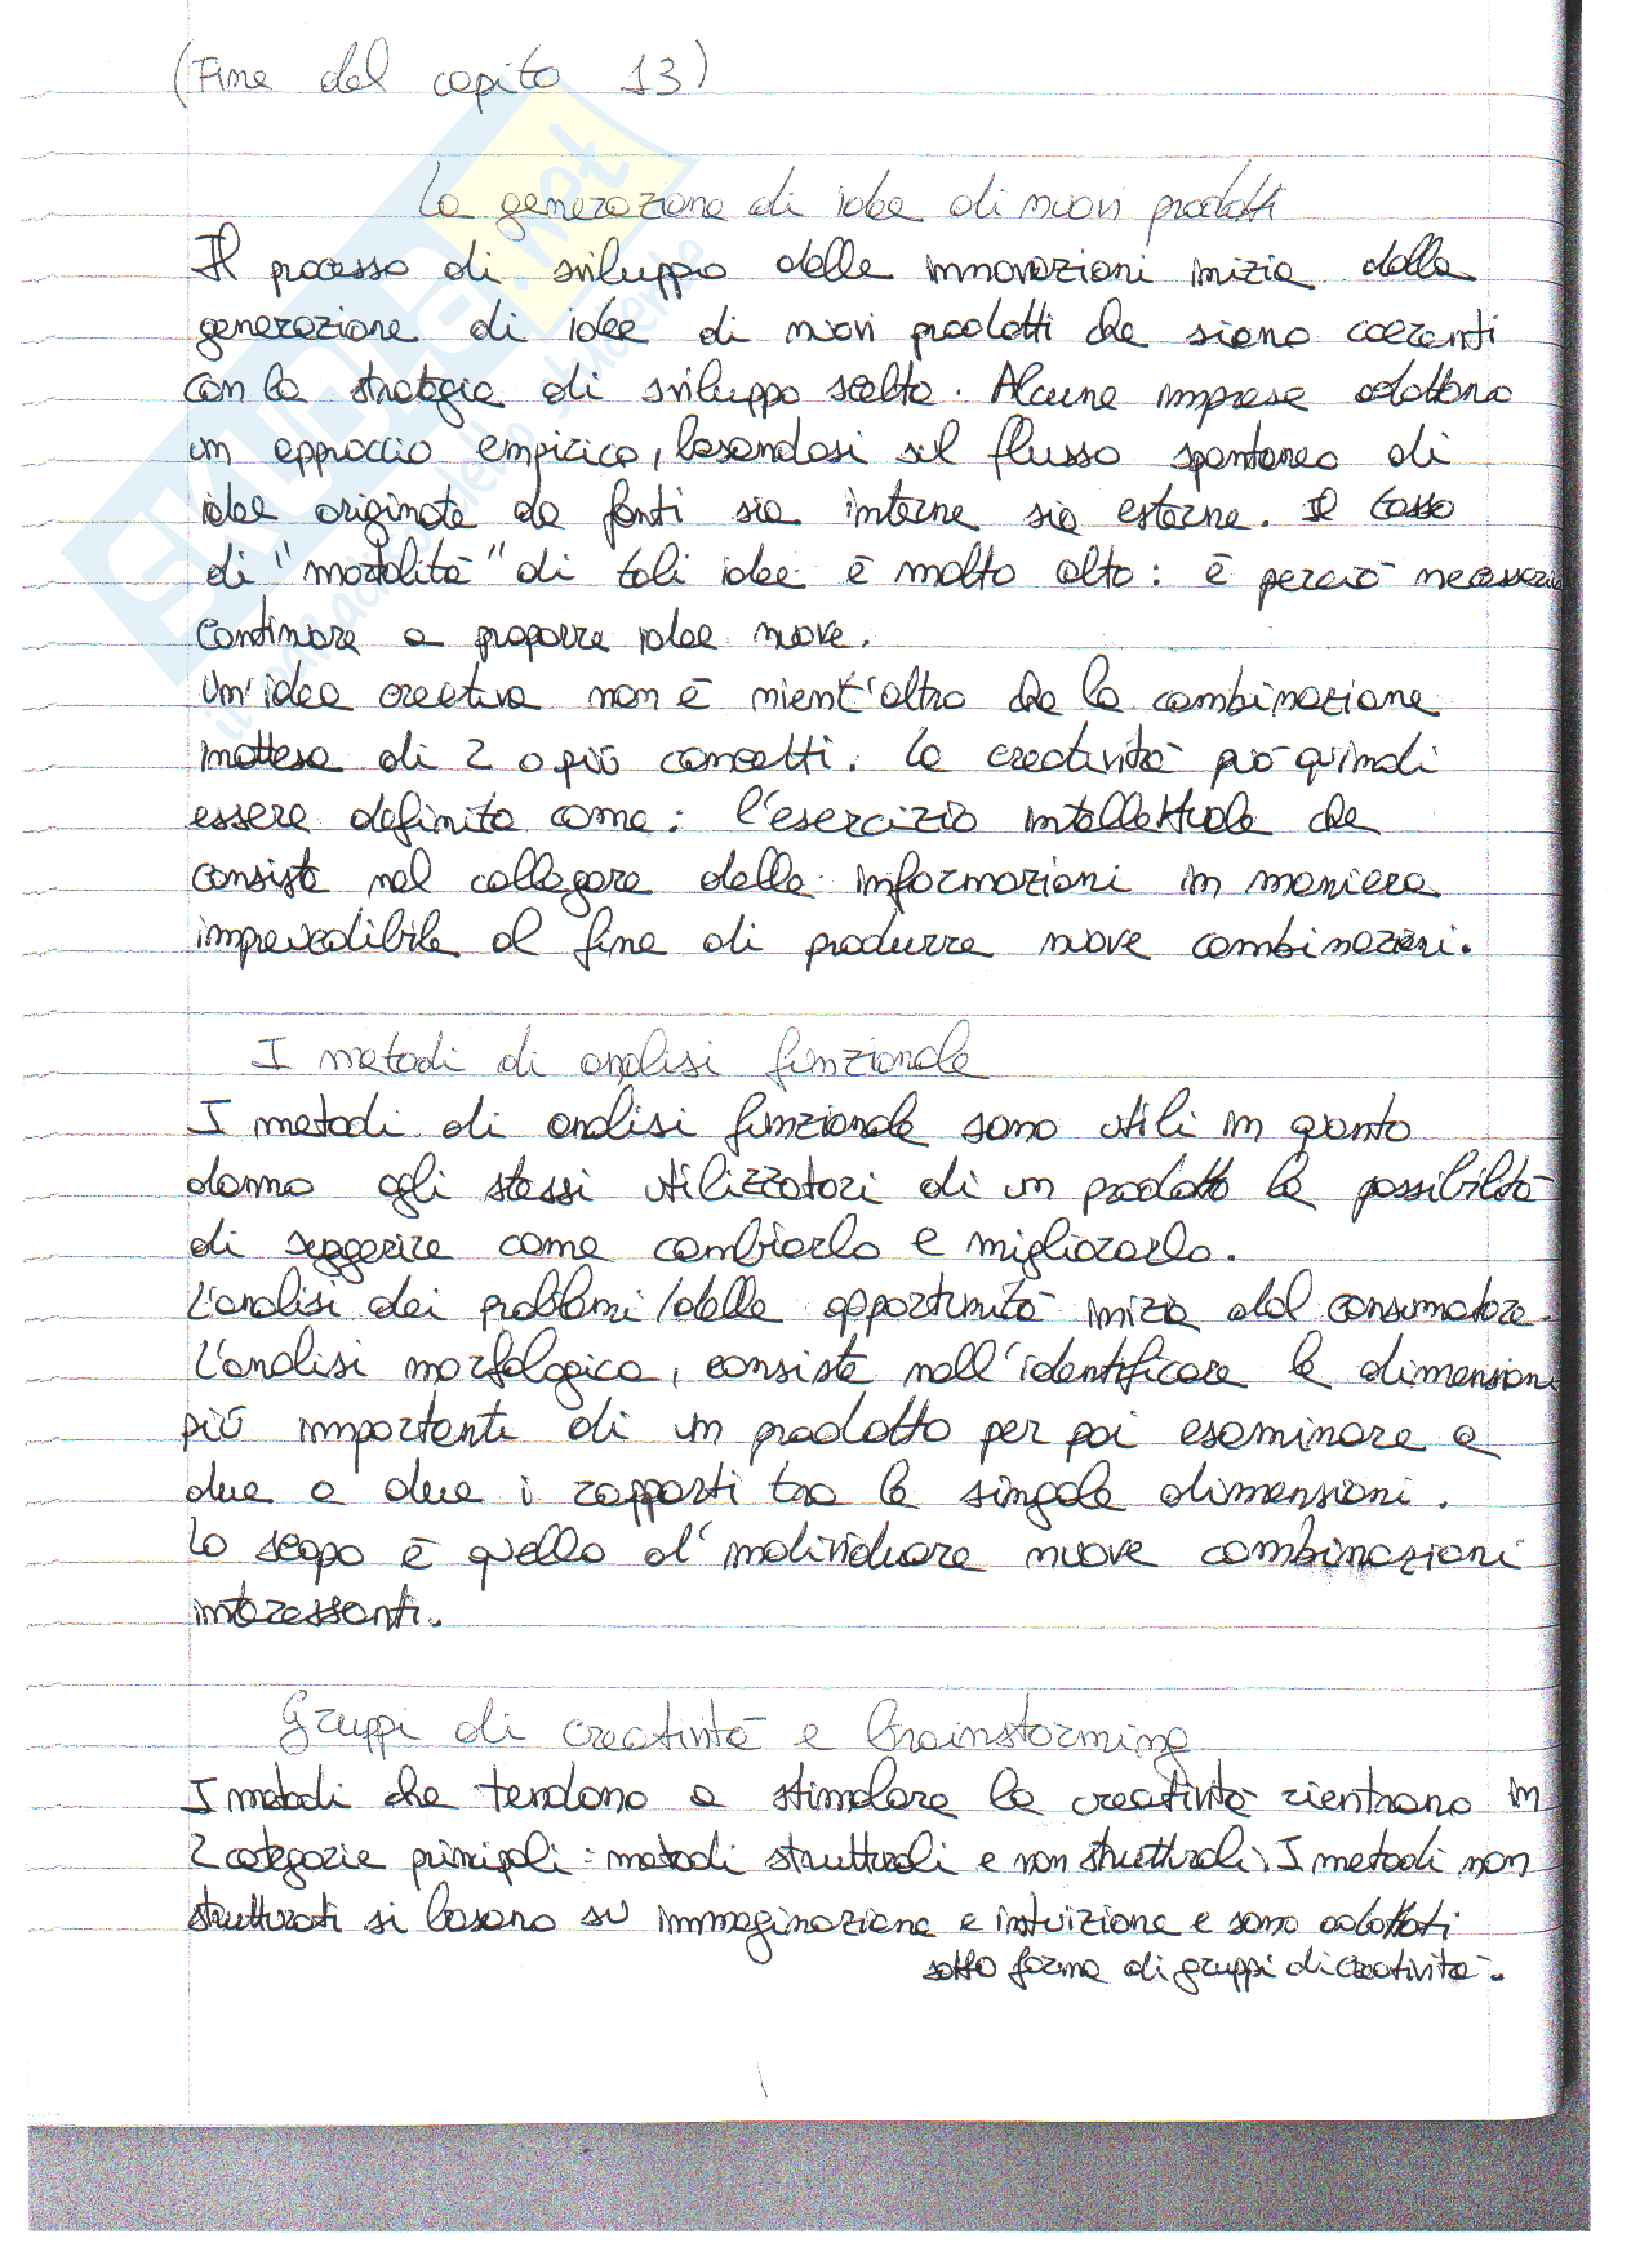 (Fine del capito 13)
La generazione di idee di nuovi prodotti
Il processo di sviluppo delle innovazioni inizia dalla
generazione di idee di nuovi prodotti che siano coerenti
con la strategia di sviluppo scelta. Alcune imprese adottano
un approccio empirico, basandosi sul flusso spontaneo di
idee originate da fonti sia interne sia esterne. Il tasso
di "mortalità" di tali idee è molto alto: è perciò necessario
continuare a proporre idee nuove.
Un'idea creativa non è nient'altro che la combinazione
inattesa di 2 o più concetti. La creatività può quindi
essere definita come: l'esercizio intellettuale che
consiste nel collegare delle informazioni in maniera
imprevedibile al fine di produrre nuove combinazioni.
I metodi di analisi funzionale
I metodi di analisi funzionale sono utili in quanto
danno agli stessi utilizzatori di un prodotto la possibilità
di suggerire come cambiarlo e migliorarlo.
L'analisi dei problemi/delle opportunità inizia dal consumatore.
L'analisi morfologica, consiste nell'identificare le dimensioni
più importanti di un prodotto per poi esaminare a
due a due i rapporti tra le singole dimensioni.
Lo scopo è quello d'individuare nuove combinazioni
interessanti.
Gruppi di creatività e brainstorming
I metodi che tendono a stimolare la creatività rientrano in
2 categorie principali: metodi strutturali e non strutturali. I metodi non
strutturati si basano su immaginazione e intuizione e sono adottati
sotto forma di gruppi di creatività.
SKUOLA.net